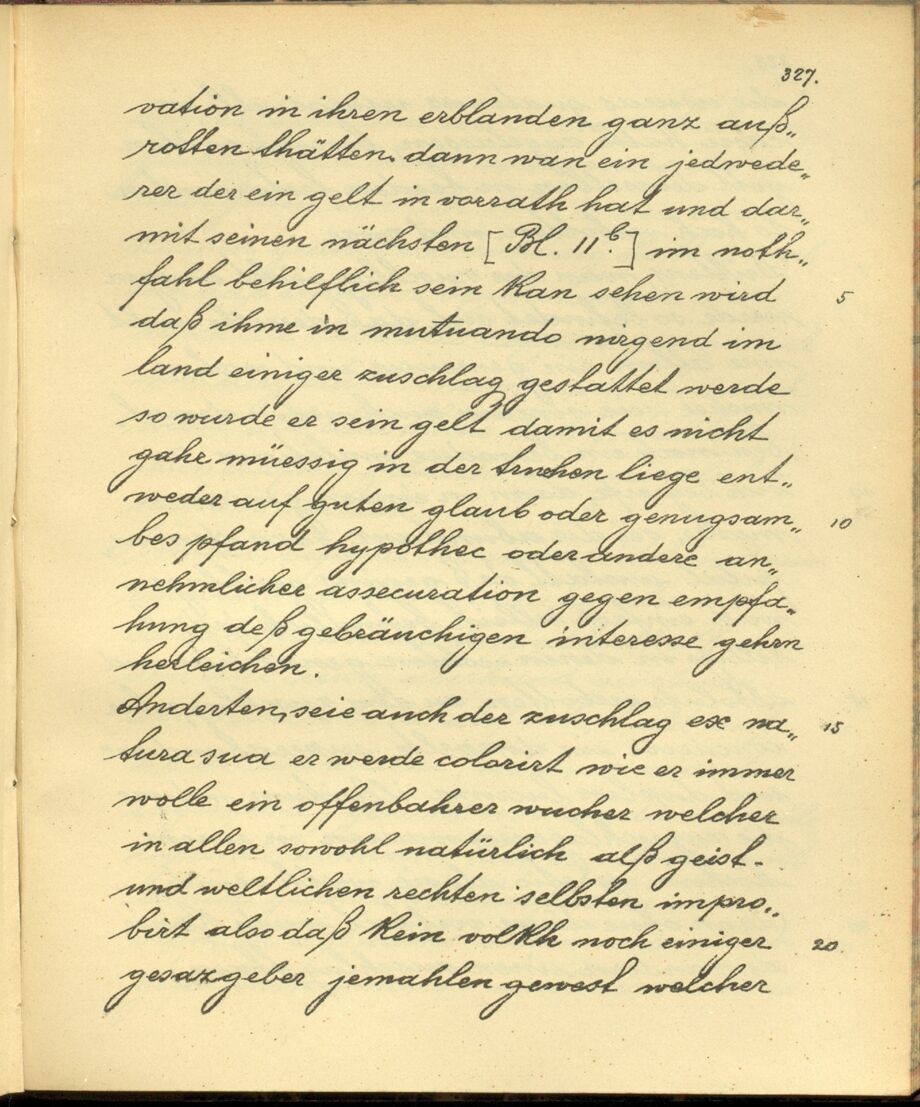 327.
vation in ihren erblanden ganz auß„
rotten thätten. dann wan ein jedwede„
rer der ein gelt in vorrath hat und dar„
mit seinen nächsten [Bl. 11b.] im noth„
fahl behilflich sein kan sehen wird 5
daß ihme in mutuando nirgend im
land einiger zuschlag gestattet werde
so wurde er sein gelt damit es nicht
gahr müessig in der truchen liege ent„
weder auf guten glaub oder genugsam„ 10
bes pfand hypothec oder andere an„
nehmlicher assecuration gegen empfa„
hung deß gebräuchigen interesse gehrn
herleichen.
Anderten, seie auch der zuschlag ex na„ 15
tura sua er werde colorirt wie er immer
wolle ein offenbahrer wucher welcher
in allen sowohl natürlich alß geist-
und weltlichen rechten selbsten impro„
birt also daß kein volkh noch einiger 20
gesazgeber jemahlen gewest welcher